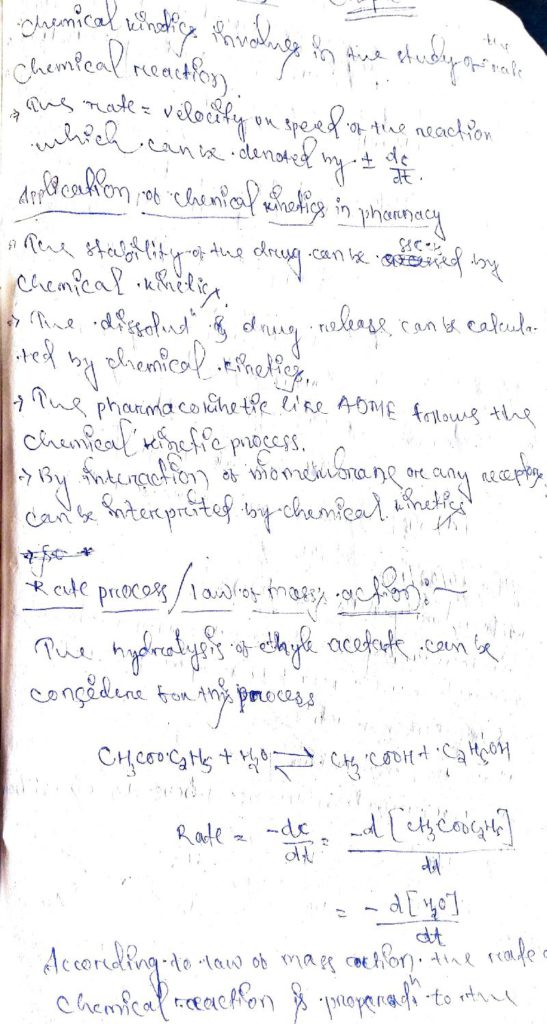 chemical kinetics involves in the study of the rate
chemical reaction.
→ The rate = velocity or speed of the reaction
which can be denoted by ± dc/dt.
Application of chemical kinetics in pharmacy
→ The stability of the drug can be by
chemical kinetics
→ The dissolutn & drug release can be calcula-
ted by chemical kinetics.
→ The pharmacokinetic like ADME follows the
chemical kinetic process.
→ By interaction of biomembrane or any receptor
can be interprited by chemical kinetics
Rate process / law of mass action :-
The hydrolysis of ethyle acetate can be
for this process
CH3COOC2H5 + H2O ⇌ CH3COOH + C2H5OH
Rate = -dc/dt = -d[CH3COOC2H5]/dt
= -d[H2O]/dt
According to law of mass action the rate o
chemical reaction is to the